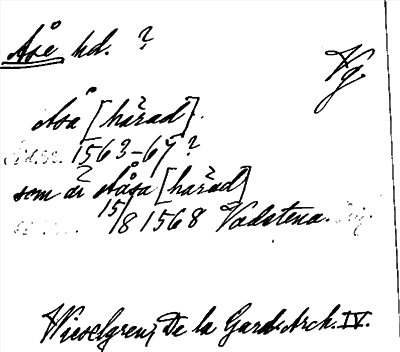 Åse hd. ?
Vg.
Åsa [härad].
1563-67 ?
som är Aåsa [härad]
15/8 1568 Vadstena.
Wieselgren, De la Gard. Arch. IV.